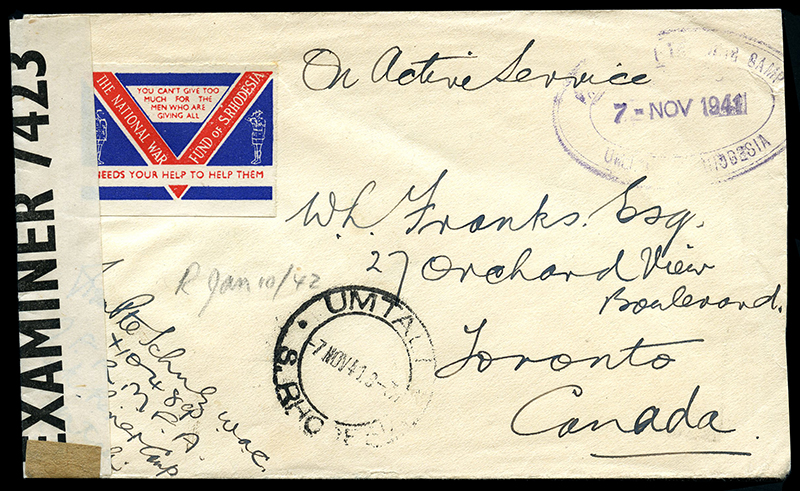 EXAMINER 7423
THE NATIONAL WAR
FUND OF S.RHODESIA
YOU CAN'T GIVE TOO
MUCH FOR THE
MEN WHO ARE
GIVING ALL
NEEDS YOUR HELP TO HELP THEM
On Active Service
CAMP
7 - NOV 1941
W.L. Franks. Esq.
27 Orchard View
Boulevard.
Toronto
Canada
R Jan 10/42
UMTALI
7 NOV 41
S. RHO
Pte Schulz